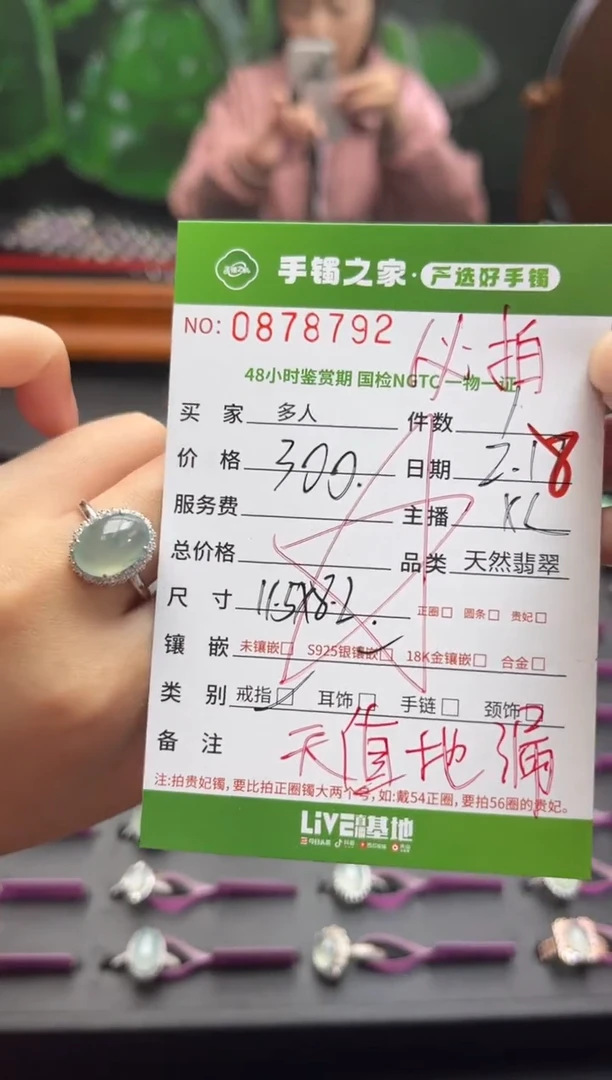 手镯之家·严选好手镯
NO: 0878792
必拍
48小时鉴赏期 国检NGTC 一物一证
买 家 多人 件数 1
价 格 300. 日期 2.18
服务费 主播 KL
总价格 品类 天然翡翠
尺 寸 11.5X8.2. 正圈□ 圆条□ 贵妃□
镶 嵌 未镶嵌□ S925银镶嵌□ 18K金镶嵌□ 合金□
类 别 戒指□ 耳饰□ 手链□ 颈饰□
备 注 天值地漏
注:拍贵妃镯,要比拍正圈镯大两个号,如:戴54正圈,要拍56圈的贵妃。
LiVE直播基地